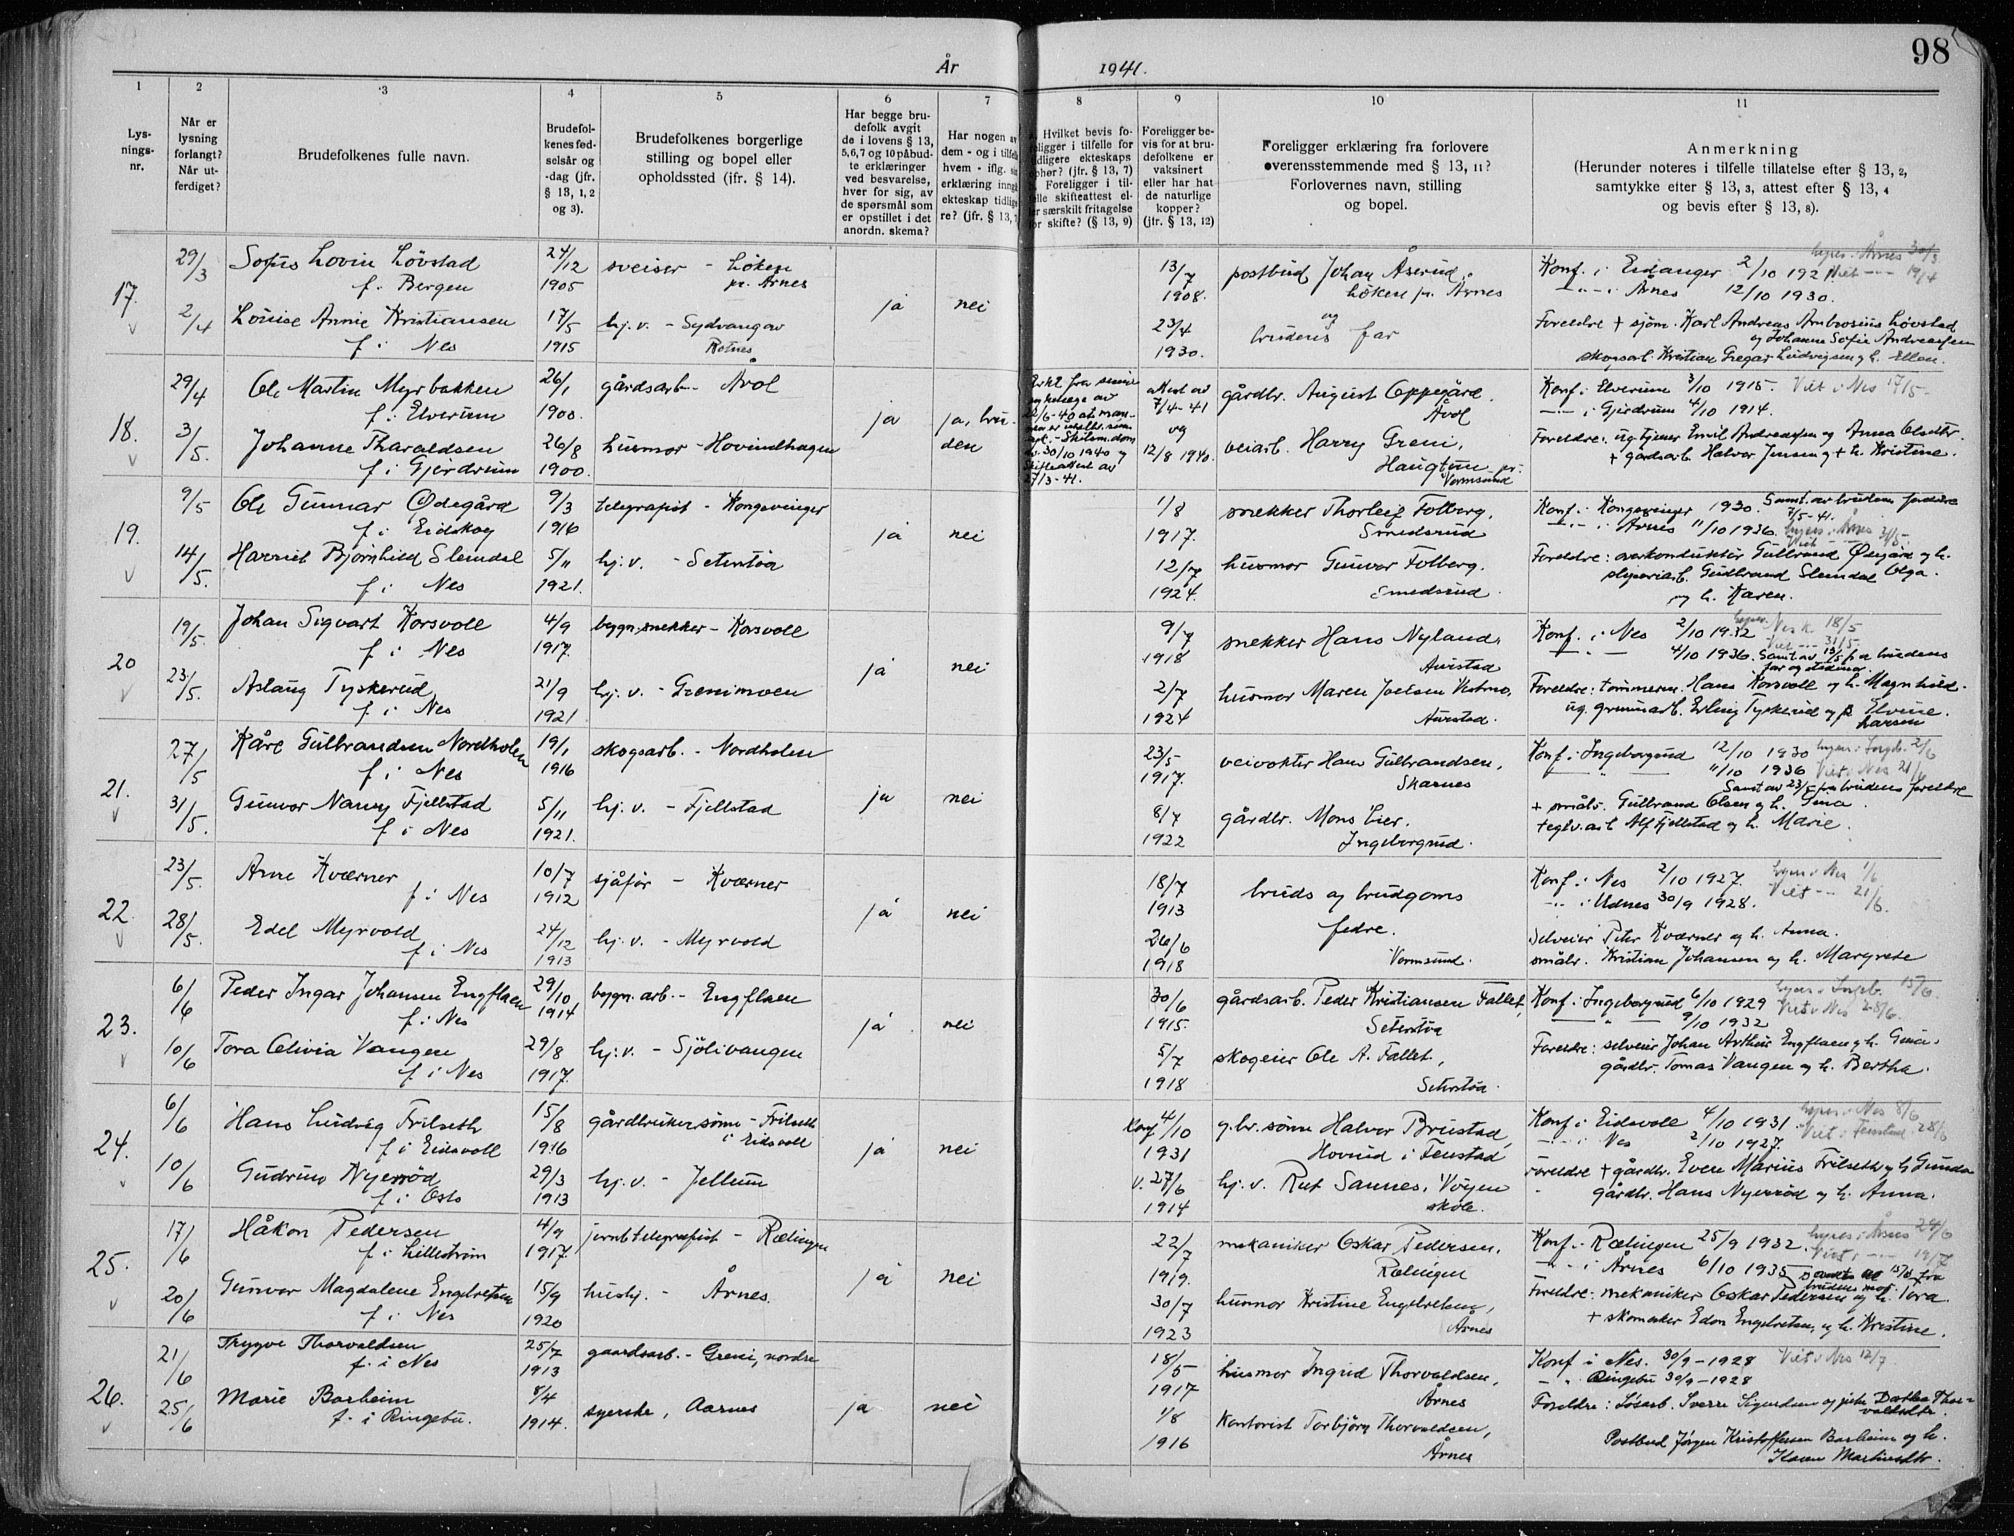 98
År 1941.
1 2 3 4 5 6 7 8 9 10 11
Lys-
nings-
nr.
Når er
lysning
forlangt?
Når ut-
ferdiget?
Brudefolkenes fulle navn.
Brudefol-
kenes fød-
selsår og
-dag (jfr.
§ 13, 1, 2
og 3).
Brudefolkenes borgerlige
stilling og bopel eller
opholdssted (jfr. § 14).
Har begge bru-
defolk avgit
de i lovens § 13,
5,6,7 og 10 påbud-
te erklæringer
ved besvarelse,
hver for sig, av
de spørsmål som
er opstillet i det
anordn. skema?
Har nogen av
dem - og i tilfelle
hvem - iflg.
erklæring inngå
ekteskap tidlige
re? (jfr. § 13,
Hvilket bevis fo-
religger i tilfelle for
tidligere ekteskaps
ophør? (jfr. § 13, 7)
Foreligger i til-
felle skifteattest el-
ler særskilt fritagelse
for skifte? (§ 13, 9)
Foreligger be-
vis for at bru-
defolkene er
vaksinert
eller har hat
de naturlige
kopper?
(jfr. § 13, 12)
Foreligger erklæring fra forlovere
overensstemmende med § 13, 11?
Forlovernes navn, stilling
og bopel.
Anmerkning
(Herunder noteres i tilfelle tillatelse efter § 13, 2,
samtykke efter § 13, 3, attest efter § 13, 4
og bevis efter § 13, 8).
17. 29/3 Sofus Lovin Løvstad 24/12 sveiser - Løken 13/7 postbud Johan Åserud, Konf. i Eidanger 2/10 1921
f. i Bergen 1905 pr. Årnes ja nei 1908. Løken pr. Årnes - " - i Årnes 12/10 1930.
2/4 Louise Annie Kristiansen 17/5 hj. v. - Sydvangav 23/4 og Foreldre + sjøm. Karl Andreas Ambrosius Løvstad
f. i Nes 1915 Rotnes 1930. brudens far og Johanne Sofie Andreassen
skogsarb. Kristian Gregar Ludvigsen og h. Ellen.
18. 29/4 Ole Martin Myrbakken 26/1 gårdsarb - Årol attest av gårdbr. August Oppegård. Konf. i Elverum 3/10 1915 Viet i Nes 17/5
f. i Elverum 1900. ja ja, bru- 7/4-41 Årol - " - i Gjerdrum 4/10 1914.
3/5. Johanne Tharaldsen 26/8 husmor - Hovindhagen den og 12/8 1940. veiarb. Harry Greni, Foreldre: ug. tjener Emil Andreassen og Anna Olsdtr.
f. i Gjerdrum 1900. Haugtun pr. Vormsund + gårdsarb. Halvor Jensen og + h. Kristine.
30/10 1940 og
Skifteattest av
27/3-41.
19. 9/5 Ole Gunnar Ødegård 9/3 telegrafist - Kongsvinger 1/8 snekker Thorleif Folberg. Konf. i Kongsvinger 1930. Samt. av brudens foreldre
f. i Eidskog 1916 ja nei 1917. Smedsrud - " - i Årnes 11/10 1936. 7/5-41.
14/5. Harriet Bjørnhild Slemdal 5/11 hj. v. - Seterstøa 12/7 husmor Gunvor Folberg. Foreldre: overkonduktør Gulbrand Ødegård og h.
f. i Nes 1921. 1924. Smedsrud. sliperiarb. Gudbrand Slemdal Olga.
og h. Karen.
20 19/5. Johan Sigvart Korsvoll 4/9 bygn. snekker - Korsvoll 9/7 snekker Hans Nyland, Konf. i Nes 2/10 1932 Nes k. 18/5
f. i Nes 1917. ja nei 1918 Aurstad 4/10 1936. Samt. av 13/5 fra brudens
23/5. Aslaug Tyskerud 21/9 hj. v. - Grenimoen 2/7 husmor Maren Joelsen Vestmo, Foreldre: tømmerm. Hans Korsvoll og h. Magnhild.
f. i Nes 1921. 1924 Aurstad. ug. grunnarb. Erling Tyskerud og Elvine
Larsen
21. 27/5 Kåre Gulbrandsen Nordholen 19/1 skogsarb. - Nordholen 23/5 veivokter Hans Gulbrandsen, Konf. i Ingeborgrud 12/10 1930
f. i Nes 1916 ja nei 1917. Skarnes 11/10 1936 Viet i Nes 21/6
31/5. Gunvor Nancy Fjellstad 5/11 hj. v. - Fjellstad 8/7 gårdbr. Mons Lier. Samt av 23/5 fra brudens foreldre
f. i Nes 1921. 1922 Ingeborgrud. + småbr. Gulbrand Olsen og h. Gina
+ teglv. arb. Alf Fjellstad og h. Marie.
22. 23/5. Arne Kværner 10/7 sjåfør - Kværner 18/7 bruds og brudgoms Konf. i Nes 2/10 1927.
f. i Nes 1912 ja nei 1913 fedre. - " - i Udnes 30/9 1928.
28/5. Edel Myrvold 24/12 hj. v. - Myrvold 26/6 Selveier Peter Kværner og h. Anna.
f. i Nes 1913 1918 Vormsund. småbr. Kristian Johansen og h. Margrete
23. 6/6 Peder Ingar Johansen Engflaen 29/10 bygn. arb. - Engflaen 30/6 gårdsarb. Peder Kristiansen Fallet, Konf. i Ingeborgrud 6/10 1929
f. i Nes 1914 ja nei 1915. Seterstøa 9/10 1932 Viet i Nes 28/6.
10/6 Tora Olivia Vangen 29/8 hj. v. - Sjölivangen 5/7 skogeier Ole A. Fallet, Foreldre: selveier Johan Arthur Engflaen og h. Gina.
f. i Nes 1917. 1918 Seterstøa. gårdbr. Tomas Vangen og h. Bertha.
24. 6/6 Hans Ludvig Frilseth 15/8 gårdbrukersønn - Frilseth Konf 4/10 g.br. sønn Halvor Brustad, Konf. i Eidsvoll 4/10 1931
f. i Eidsvoll 1916 i Eidsvoll ja nei 1931 Hovind i Fenstad - " - i Nes 2/10 1927.
10/6 Gudrun Nyerrød 29/3 hj. v. - Jellum v. 27/6 hj. v. Rut Sannes, Vøyen Foreldre + gårdbr. Even Marius Frilseth og h. Gunda
f. i Oslo 1913 1914 skole. gårdbr. Hans Nyerrød og h. Anna.
25. 17/6 Håkon Pedersen 4/9 jernb. telegrafist - Rælingen 22/7 mekaniker Oskar Pedersen. Konf. i Rælingen 25/9 1932.
f. i Lillestrøm 1917. ja nei 1919. Rælingen - " - i Årnes 6/10 1935
20/6 Gunvor Magdalene Engebretsen 15/9 hushj. - Årnes. 30/7 husmor Kristine Engebretsen, Foreldre: mekaniker Oskar Pedersen og h. Tora.
f. i Nes 1920 1923 Årnes + skomaker Edon Engebretsen og h. Kristine.
26. 21/6 Trygve Thorvaldsen 25/7 gaardsarb. - Greni, nordre 18/5 husmor Ingrid Thorvaldsen, Konf i Nes. 30/9 - 1928 Viet i Nes 12/7.
f. i Nes 1913 ja nei 1917 Årnes - " - Ringebu 30/9 - 1928
25/6 Marie Barheim 8/4 syerske, Aarnes 1/8 Kontorist Torbjørn Thorvaldsen, Foreldre: Løsarb. Sverre Sigurdsen og pike Dorthea Thor-
f. i Ringebu. 1914. 1916 Årnes valdsdtr.
Postbud Jørgen Kristoffersen Barheim og h.
Karen Martinsdtr.